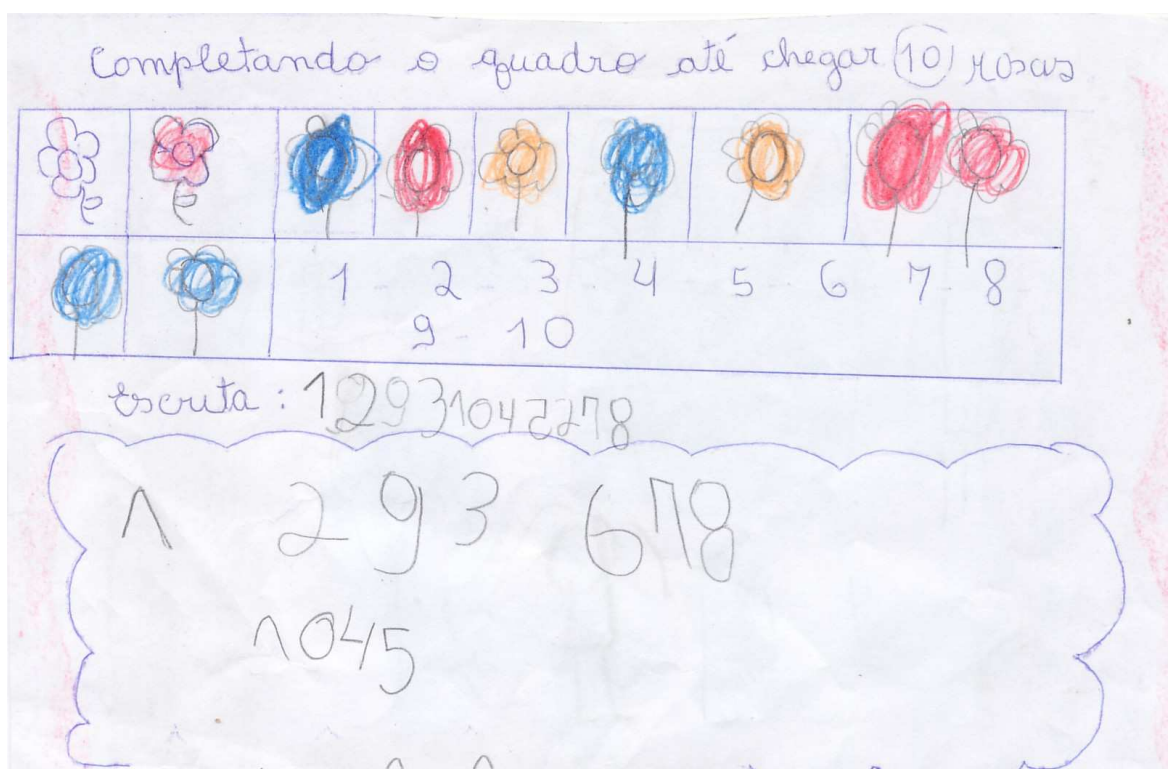 Completando o quadro até chegar 10 rosas
1 - 2 - 3 - 4 - 5 - 6 - 7 - 8
9 - 10
Escrita: 129310452278
1 2 9 3 6 7 8
1045